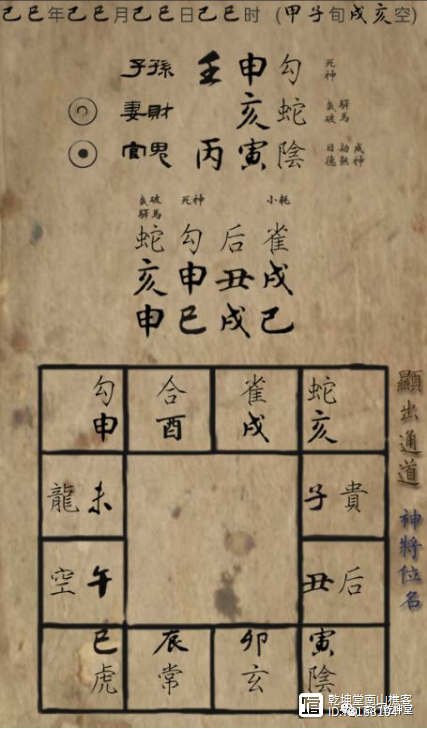 己巳年己巳月己巳日己巳时 (甲子旬戌亥空)
子孫 壬申 勾 死神
妻財 亥 蛇 驛馬 歲破
官鬼 丙寅 陰 日德 劫煞 成神
歲破 驛馬 死神 小耗
蛇 勾 后 雀
亥 申 丑 戌
申 巳 戌 己
勾 合 雀 蛇
申 酉 戌 亥
龍 未 子 貴
空 午 丑 后
巳 辰 卯 寅
虎 常 玄 陰
顯出通道
神將位名
乾坤堂南山樵客